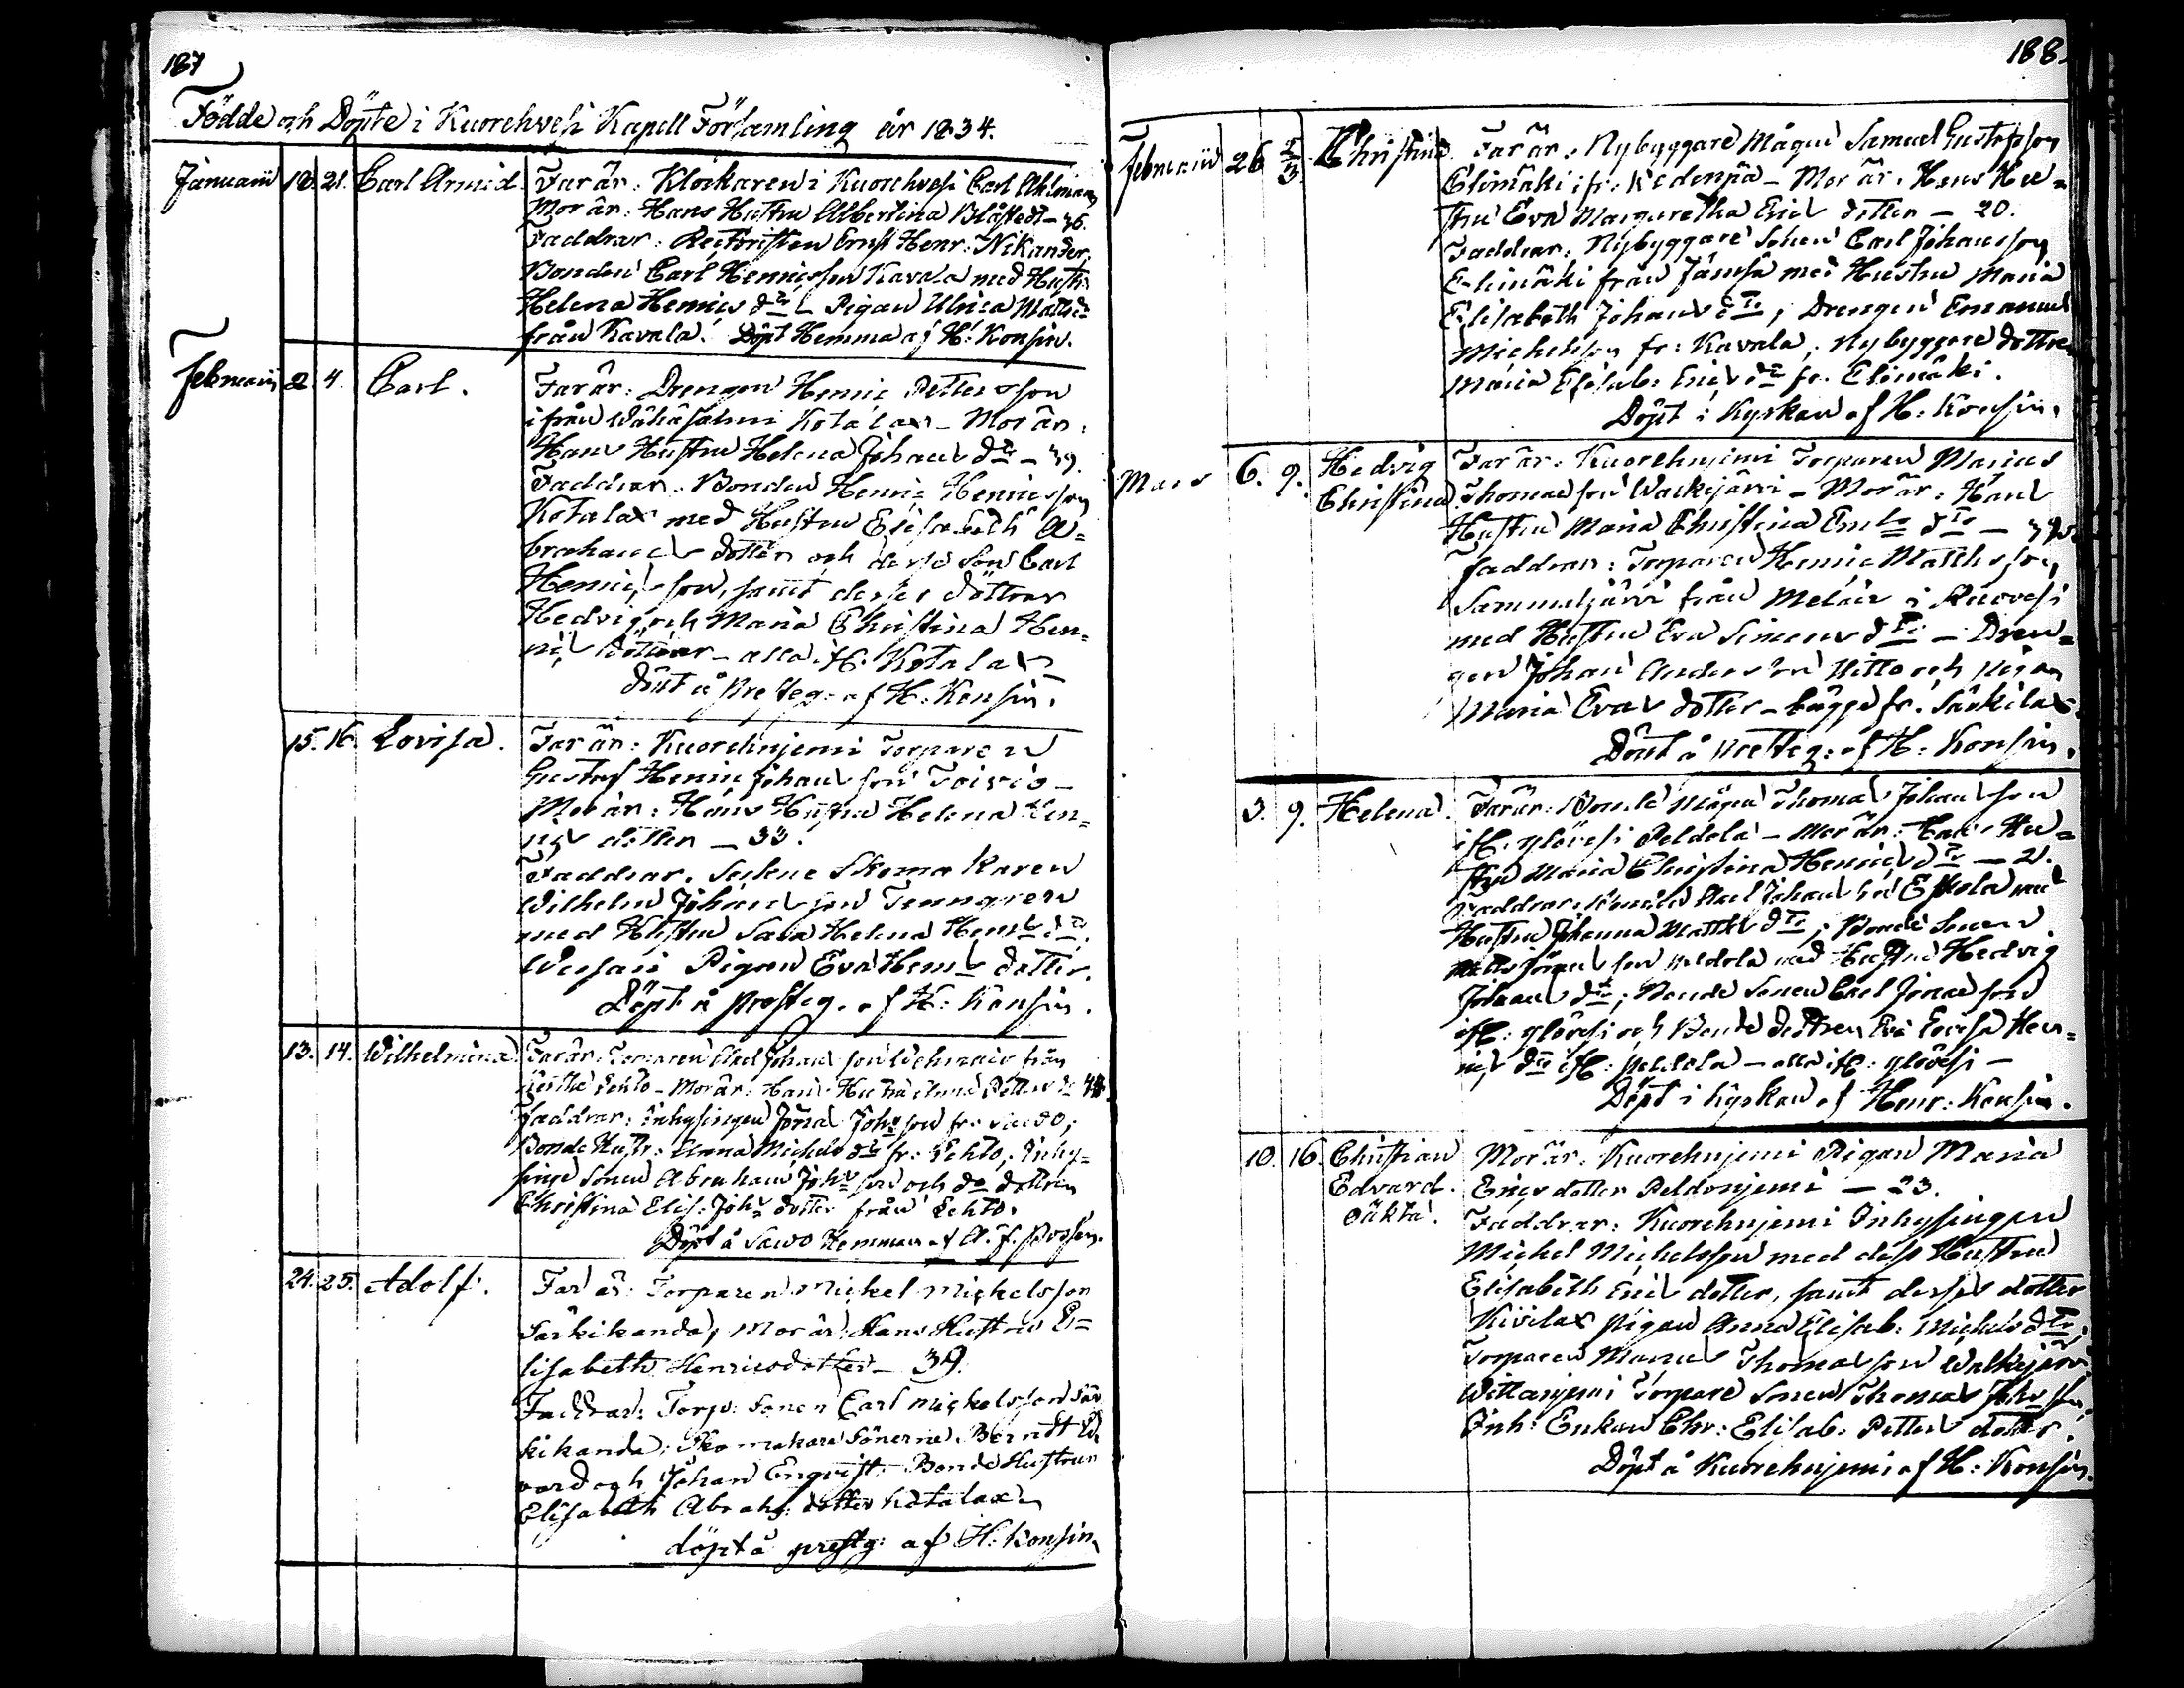 187
Födde och Döpte i Kuorehvesi Kapell Församling år 1834.
Januarii 18. 21. Carl Arvid. Far är: Klockaren i Kuorehvesi Carl Ahlman
Mor är: Hans Hustru Albertina Blåfieldt - 36.
Faddrar: Henr: Nikander,
Bonden Carl Henricsson Kavala med Hustr:
Helena Henrics dr Pigan Ulrica Matts dr
från Kavala. Döpt Hemma af H: Konsin.
Februarii 2. 4. Carl. Far är: Drengen Henric Pettersson
ifrån Wähäsalmi Kotalax - Mor är:
Hans Hustru Helena Johans dr - 39.
Faddrar: Bonden Henric Henricsson
Kotalax med Hustru Elisabeth A=
brahams dotter och dess son Carl
Henricsson, samt desses döttrar
Hedvig och Maria Christina Hen=
rics döttrar - alla if. Kotalax
döpt å Presteg: af H: Konsin.
15. 16. Lovisa. Far är: Kuorehnjemi Torparen
Gustaf Henric Johansson Toivio -
Mor är: Hans Hustru Helena Hen=
rics dotter - 33.
Faddrar. Sockne Skomakaren
Wilhelm Johansson Tenngren
med Hustru Sara Helena Henrs dr,
Pigan Eva Henrs dotter.
Döpt å Presteg. af H: Konsin.
13. 14. Wilhelmina. Far är: Torparen Axel Johansson från
Lehto - Mor är: Hans Hustru Anna Petters dr 48.
Faddrar: Inhysingen Jöran Johsson fr:
Bonde Hustr: Anna Michels dr fr: Lehto, Inhy=
singe Sonen Abraham Johsson och do dottren
Christina Elis: Johs dotter från Lehto.
Döpt å Sawo Hemman af
24. 25. Adolf. Far är: Torparen Michel Michelsson
Särkikanda, Mor är: Hans Hustru E=
lisabeth Henricsdotter - 39.
Faddrar: Torp: Sonen Carl Michelsson Sär
kikanda, Skomakare Sönerne Berndt Ed
vard och Johan Enqvist. Bonde Hustrun
Elisabeth Abrahs: dotter Kotalax
döpt å prestg: af H: Konsin
188.
Februarii 26 2/3 Christina Far är: Nybyggare Mågen Samuel Gustafsson
Elimäki ifr: Kedenpä - Mor är: Hans Hu=
stru Eva Margaretha Erics dotter - 20.
Faddrar: Nybyggare Sonen Carl Johansson
Elimäki från Jämsä med Hustru Maria
Elisabeth Johans dr, Drengen Emanuel
Michelsson fr: Kavala, Nybyggare dottren
Maria Elisab: Erics dr fr. Elimäki.
Döpt i Kyrkan af H: Konsin.
Mars 6. 9. Hedvig Christina. Far är: Kuorehnjemi Torparen Manus
Thomasson Walkijärvi - Mor är: Hans
Hustru Maria Christina dr -
Faddrar: Torparen Henric Mattsson
Sammaljärvi från i Ruovesi
med Hustru Eva Simons dr - Dren=
gen Johan Andersson Uitto och Pigan
Maria Evas dotter - bägge fr. Särkilax.
Döpt å Presteg: af H: Konsin.
3. 9. Helena. Far är: Bonde Mågen Thomas Johansson
if: Ylövesi Peldola - Mor är: Hans Hu=
stru Maria Christina Henrics dr - 21.
Faddrar: Axel Johansson Eskola med
Hustru Johanna Matts dr; Bonde Sonen
Matts Johansson Peldola med Hustru Hedvig
Johans dr; Bonde Sonen Carl Jonasson
if: Ylövesi och Bonde dottren Eva Lovisa Hen=
rics dr if: Peldola - alla if: Ylövesi -
Döpt i Kyrkan af Henr: Konsin.
10. 16. Christian Edvard. oäkta. Mor är: Kuorehnjemi Pigan Maria
Erics dotter Peldonjemi - 23.
Faddrar: Kuorehnjemi Inhysingen
Michel Michelsson med dess Hustru
Elisabeth Erics dotter, samt desses dotter
Kivilax Pigan Anna Elisab: Michels dr;
Torparen Manus Thomasson Walkijärvi
Wittanjemi Torpare Sonen Thomas Johsson,
Inh: Enkan Chr: Elisab: Petters dotter.
Döpt å Kuorehnjemi af H: Konsin.